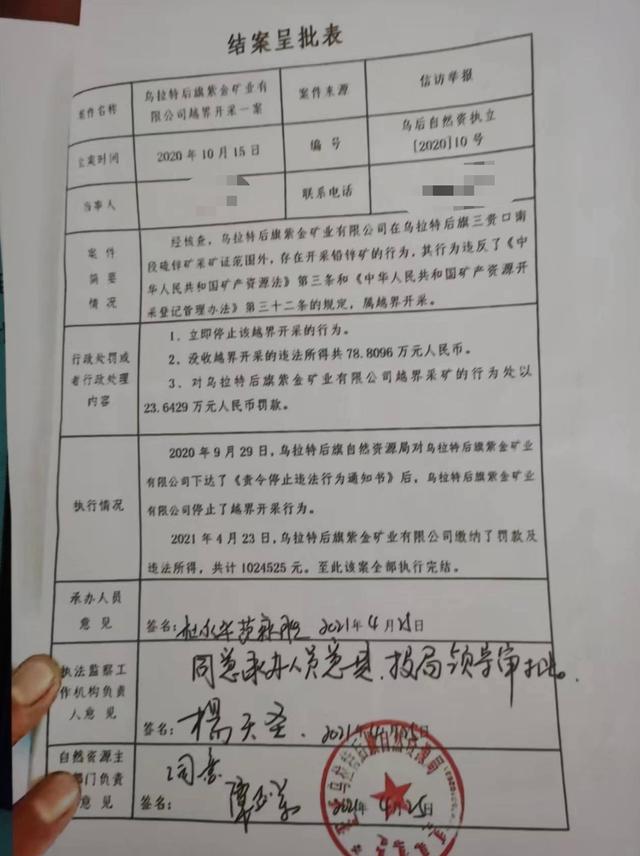 结案呈批表
案件名称
乌拉特后旗紫金矿业有
限公司越界开采一案
案件来源
信访举报
立案时间
2020年10月15日
编 号
乌后自然资执立
[2020]10号
当事人
联系电话
案 件
简 要
情 况
经核查，乌拉特后旗紫金矿业有限公司在乌拉特后旗三贵口南
段硫锌矿采矿证范围外，存在开采铅锌矿的行为，其行为违反了《中
华人民共和国矿产资源法》第三条和《中华人民共和国矿产资源开
采登记管理办法》第三十二条的规定，属越界开采。
行政处罚或
者行政处理
内容
1、立即停止该越界开采的行为。
2、没收越界开采的违法所得共78.8096万元人民币。
3、对乌拉特后旗紫金矿业有限公司越界采矿的行为处以
23.6429万元人民币罚款。
执行情况
2020年9月29日，乌拉特后旗自然资源局对乌拉特后旗紫金矿业
有限公司下达了《责令停止违法行为通知书》后，乌拉特后旗紫金矿业
有限公司停止了越界开采行为。
2021年4月23日，乌拉特后旗紫金矿业有限公司缴纳了罚款及
违法所得，共计1024525元。至此该案全部执行完结。
承办人员
意 见
签名：
2021年4月25日
执法监察工
作机构负责
人意见
同意承办人员意见，报局领导审批。
签名：杨天圣
2021年4月25日
自然资源主
部门负责
意 见
同意
签名：
2021年4月25日
乌拉特后旗自然资源局